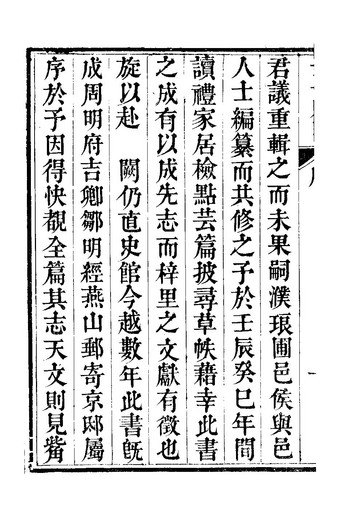 君議重輯之而未果嗣濮琅圃邑侯與邑
人士編纂而共修之予於壬辰癸巳年間
讀禮家居檢點芸篇披尋草帙藉幸此書
之成有以成先志而梓里之文獻有徵也
旋以赴 闕仍直史館今越數年此書旣
成周明府吉卿鄒明經燕山郵寄京邸屬
序於予因得快覩全篇其志天文則見觜